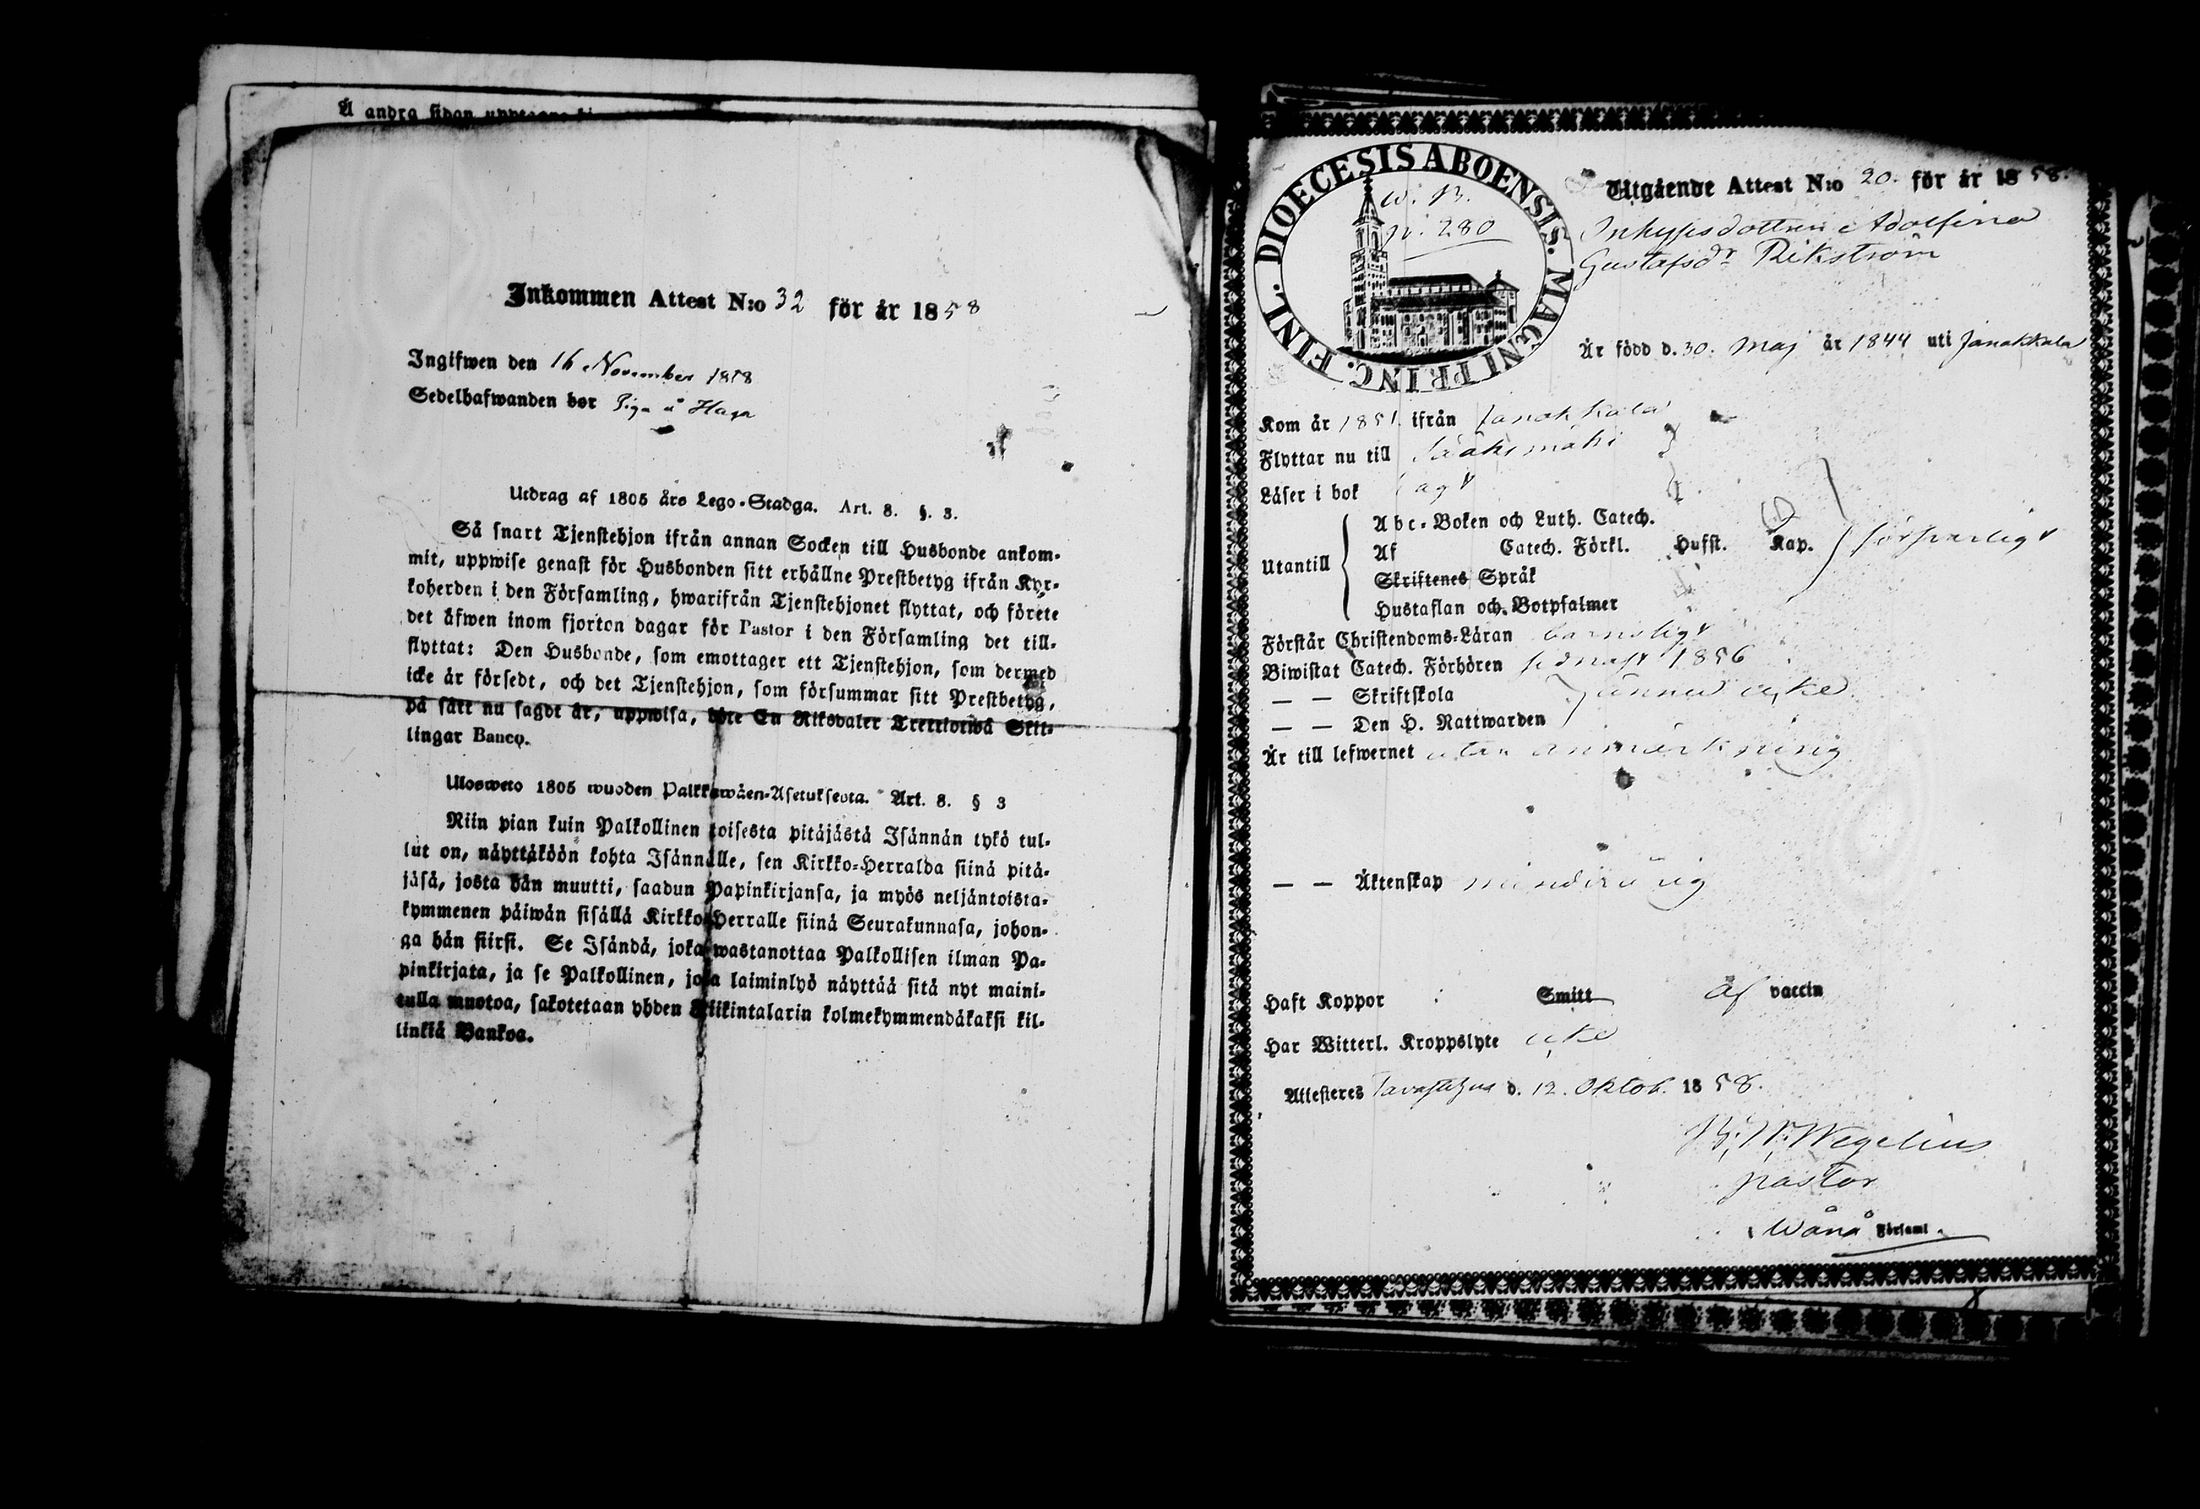 Å andra sidan upptagne
Inkommen Attest N:o 32 för år 1858
Ingifwen den 16 November 1858
Sedelhafwanden bor Piga å Haga
Utdrag af 1805 års Lego-Stadga. Art. 8. §. 3.
Så snart Tjenstehjon ifrån annan Socken till Husbonde ankom-
mit, uppwise genast för Husbonden sitt erhållne Prestbetyg ifrån Kyr-
koherden i den Församling, hwarifrån Tjenstehjonet flyttat, och förete
det äfwen inom fjorton dagar för Pastor i den Församling det till-
flyttat: Den Husbonde, som emottager ett Tjenstehjon, som dermed
icke är försedt, och det Tjenstehjon, som försummar sitt Prestbetyg,
på sätt nu sagdt är, uppwisa, böte En Riksdaler Trettiotwå Skil-
lingar Banco.
Ulosweto 1805 wuoden Palkkawäen-Asetuksesta. Art. 8. § 3
Niin pian kuin Palkollinen toisesta pitäjästä Isännän tykö tul-
lut on, näyttäköön kohta Isännälle, sen Kirkko-Herralda siinä pitä-
jäsä, josta hän muutti, saadun Papinkirjansa, ja myös neljäntoista-
kymmenen päiwän sisällä Kirkko-Herralle siinä Seurakunnasa, johon-
ga hän siirsi. Se Isändä, joka wastanottaa Palkollisen ilman Pa-
pinkirjata, ja se Palkollinen, joka laiminlyö näyttää sitä nyt maini-
tulla muotoa, sakotetaan yhden Riikintalarin kolmekymmendäkaksi kil-
linkiä Bankoa.
DIOECESIS ABOENSIS. MAGNI PRINC. FINL.
w. B.
p. 280
Utgående Attest N:o 20. för år 1858.
Inhysesdottren Adolfina
Gustafsdr Rikström
Är född d. 30. Maj år 1844 uti Janakkala
Kom år 1851. ifrån Janakkala
Flyttar nu till Sääksmäki
Läser i bok
Utantill
Abc-Boken och Luth. Catech.
Af Catech. Förkl. Hufst. Kap. försvarligt
Skriftenes Språk
Hustaflan och Botpsalmer
Förstår Christendoms-Läran barnsligt
Biwistat Catech. Förhören sednast 1856
— — Skriftskola ännu icke
— — Den H. Nattwarden
Är till lefwernet utan anmärkning
— — Äktenskap minderårig
Haft Koppor Smitt af vaccin
Har Witterl. Kroppslyte icke
Attesteres Tavastehus d. 12. Oktob. 1858.
Wegelius
pastor
Wånå Församl.